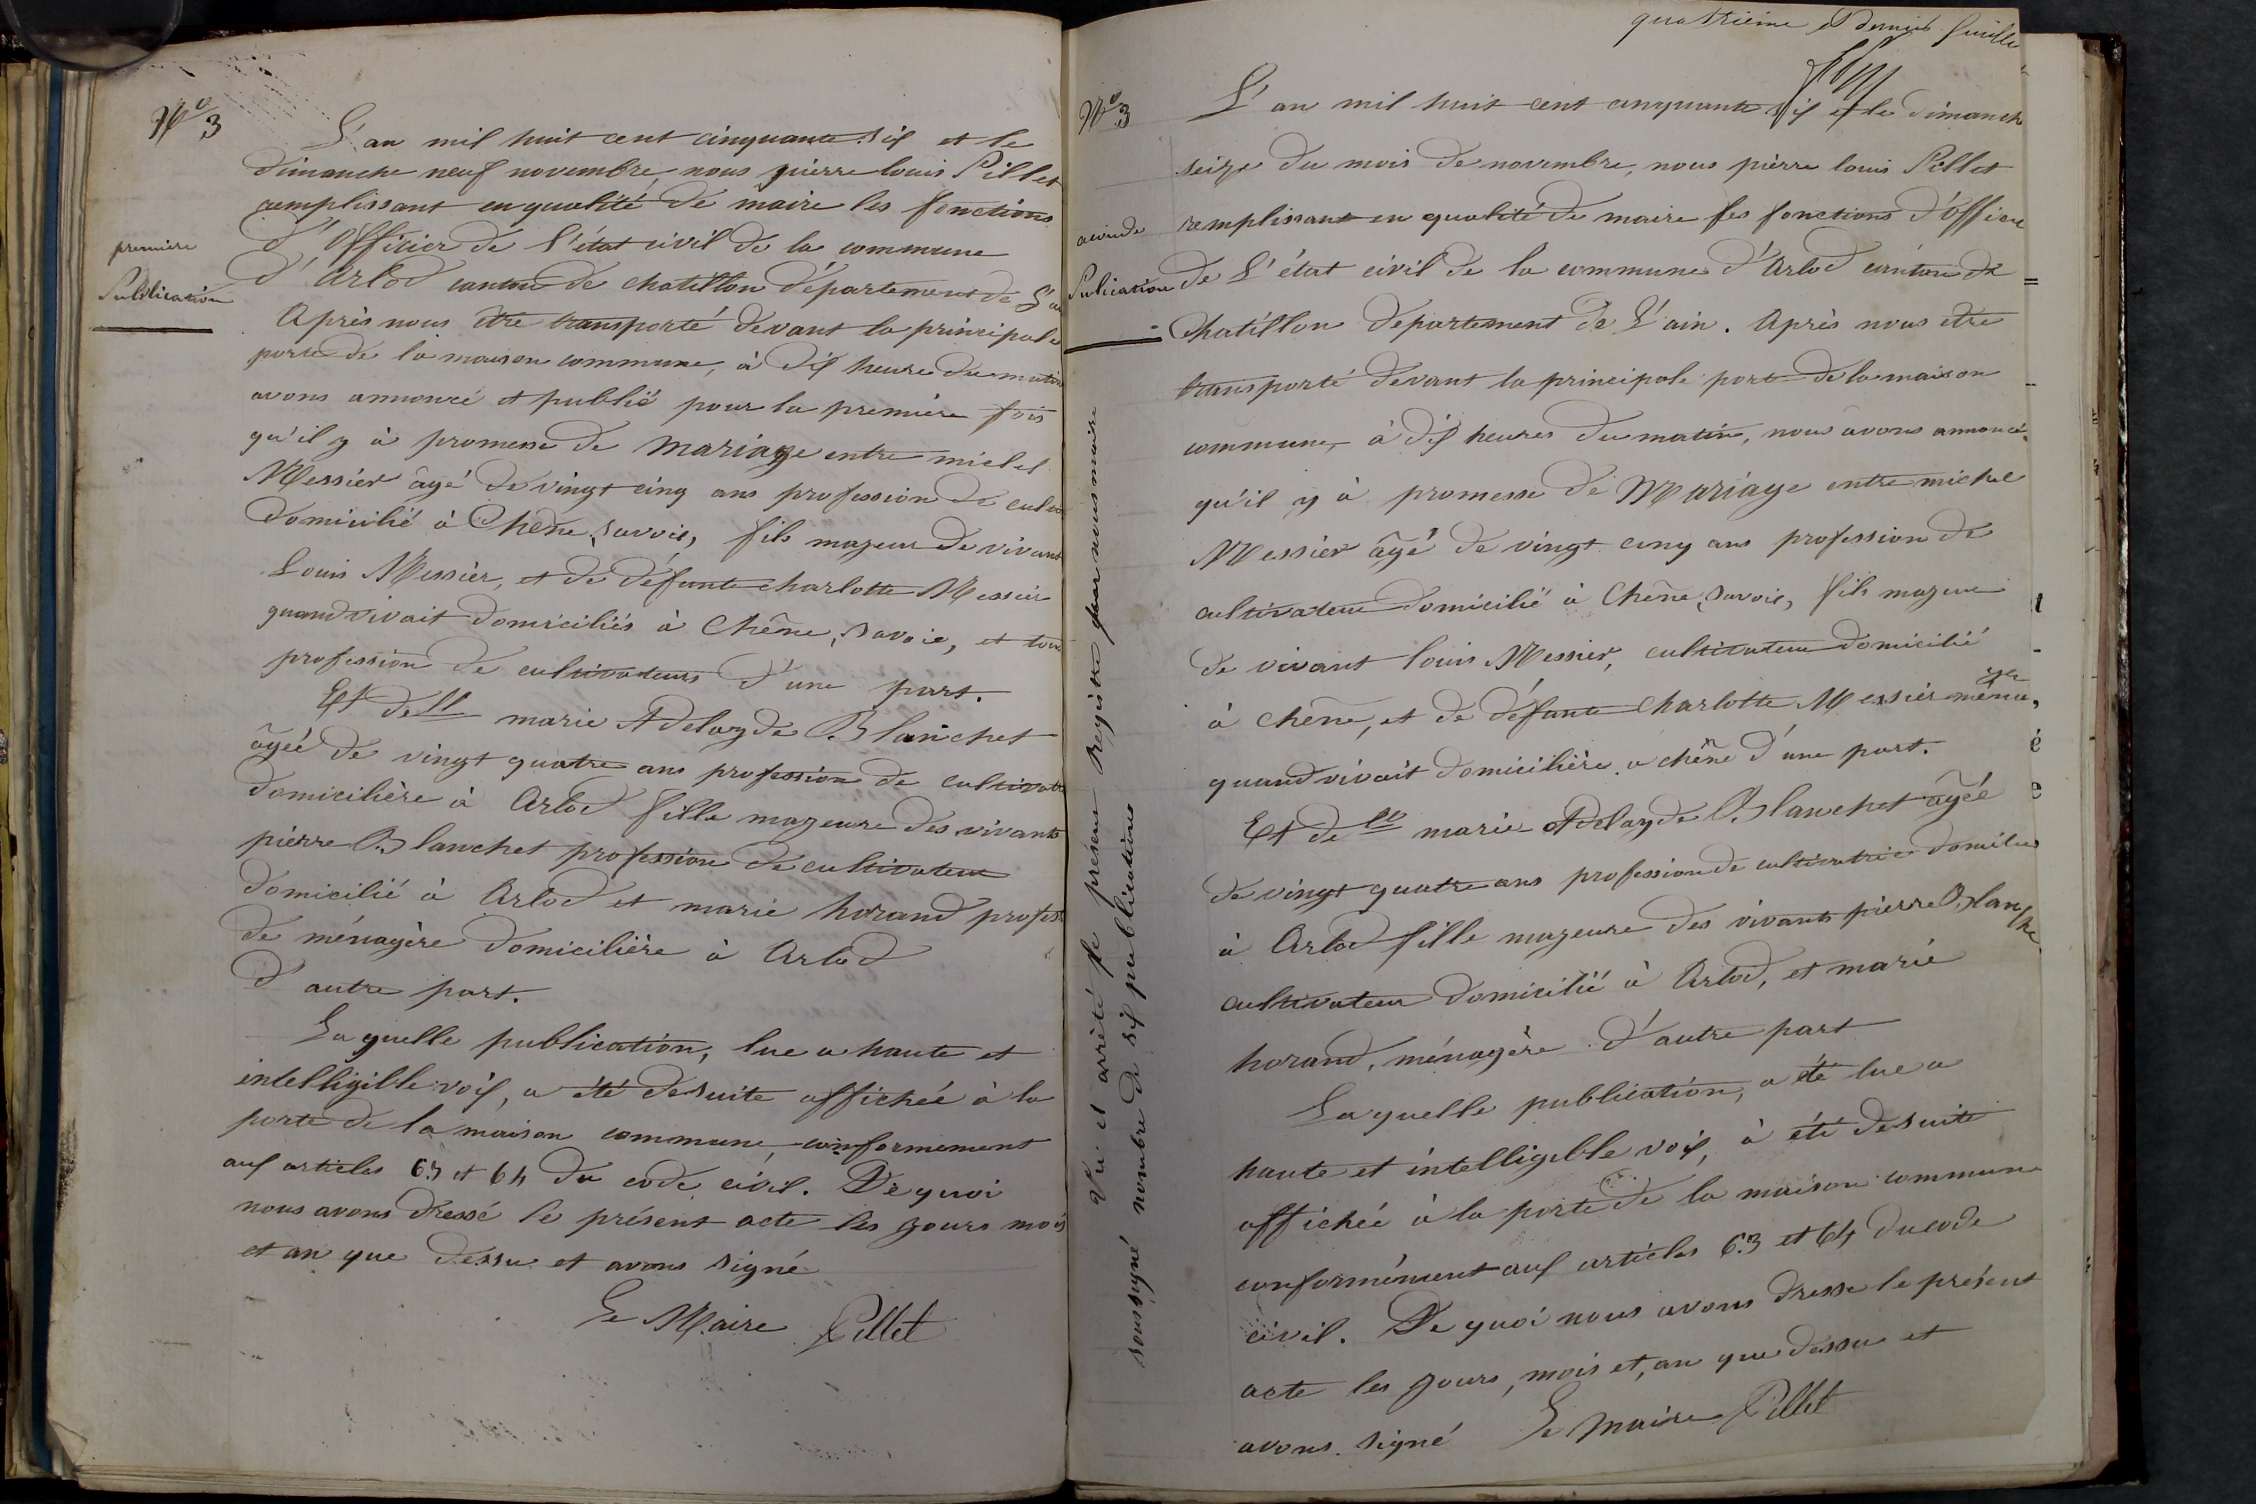 No 3
première
Publication
L'an mil huit cent cinquante six et le
dimanche neuf novembre, nous pierre louis Pillet
remplissant en qualité de maire les fonctions
d'Officier de l'état civil de la commune
d'Arlod canton de chatillon département de l'ai
Après nous être transporté devant la principale
porte de la maison commune, à dix heure du matin
avons annoncé et publié pour la première fois
qu'il y à promesse de Mariage entre michel
Messier âgé de vingt cinq ans profession de cultiv
domicilié à Chêne, savoie, fils majeur de vivant
Louis Messier, et de défunte charlotte Messier
quand vivait domiciliés à Chêne, savoie, et tous
profession de cultivateurs d'une part.
Et de lle marie Adelayde Blanchet
âgéé de vingt quatre ans profession de cultivat
domicilière à Arlod fille majeure des vivants
pierre Blanchet profession de cultivateur
domicilié à Arlod et marie horand profess
de ménagère domicilière à Arlod
d'autre part.
Laquelle publication, lue a haute et
intelligible voix, a été desuite affichée à la
porte de la maison commune, conformement
aux articles 63 et 64 du code civil. De quoi
nous avons dressé le présent acte les jours mois
et an que dessu et avons signé
Le Maire Pillet
quatrième et dernier feuille
No 3
Publication
L'an mil huit cent cinquante six et le dimanch
seize du mois de novembre, nous pierre louis Pillet
remplissant en qualité de maire les fonctions d'Officier
de l'état civil de la commune d'Arlod canton de
Chatillon departement de l'ain. Après nous etre
transporté devant la principale porte de la maison
commune, à dix heures du matin, nous avons annoncé
qu'il y à promesse de Mariage entre michel
Messier âgé de vingt cinq ans profession de
cultivateur domicilié à Chêne, savoie, fils majeur
de vivant louis Messier, cultivateur domicilié
à chêne, et de défunte charlotte Messier ménagère,
quand vivait domicilière a chêne d'une part.
Et de lle marie Adelayde Blanchet âgéé
de vingt quatre ans profession de cultivatrice domicilié
à Arlod fille majeure des vivants pierre Blanche
cultivateur domicilié à Arlod, et marie
horand, ménagère d'autre part
Laquelle publication, a été lue a
haute et intelligible voix, à été desuite
affichée à la porte de la maison commune
conformément aux articles 63 et 64 du code
civil. De quoi nous avons dresse le présent
acte les jours, mois et, an que dessu et
avons signé Le maire Pillet
Vu et arrêté le présent Registre par nous maire
soussigné nombre de six publications